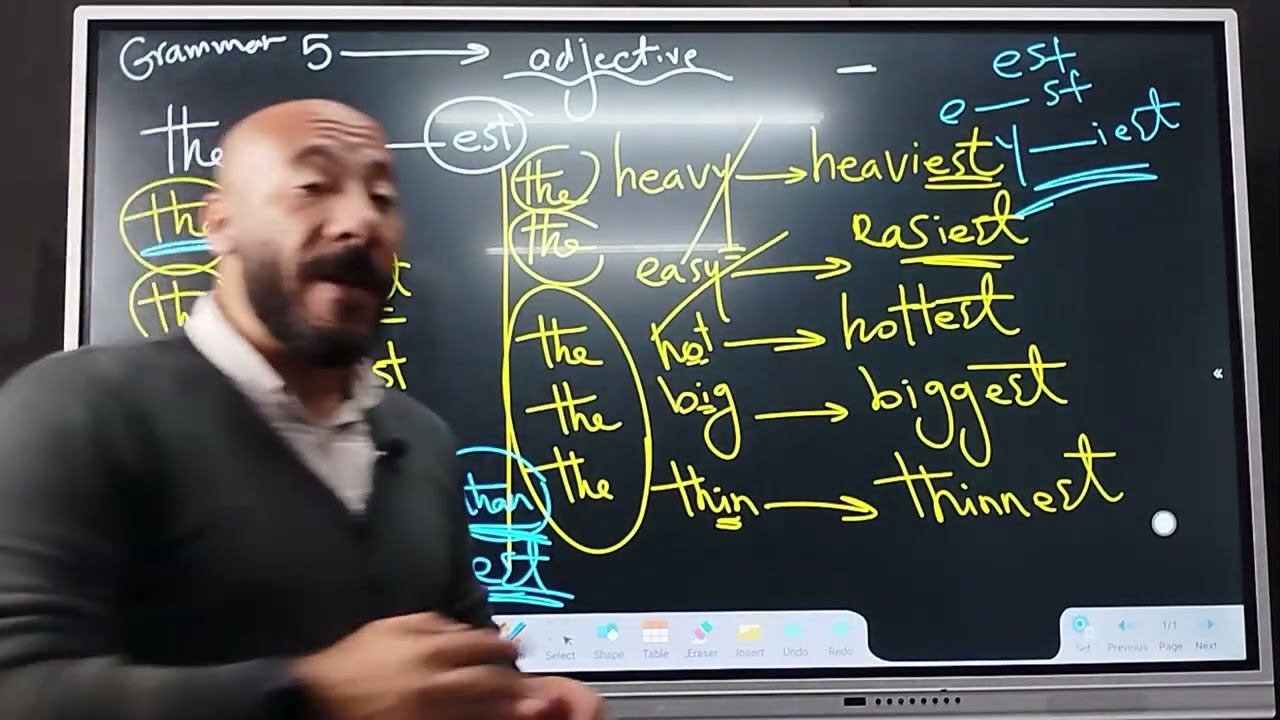 Grammar 5 → adjective
est
e — st
y — iest
the — est
the heavy → heaviest
the easy → easiest
the hot → hottest
the big → biggest
the thin → thinnest
the
the
st
than
est
Select Shape Table Eraser Insert Undo Redo
Set Previous 1/1 Page Next